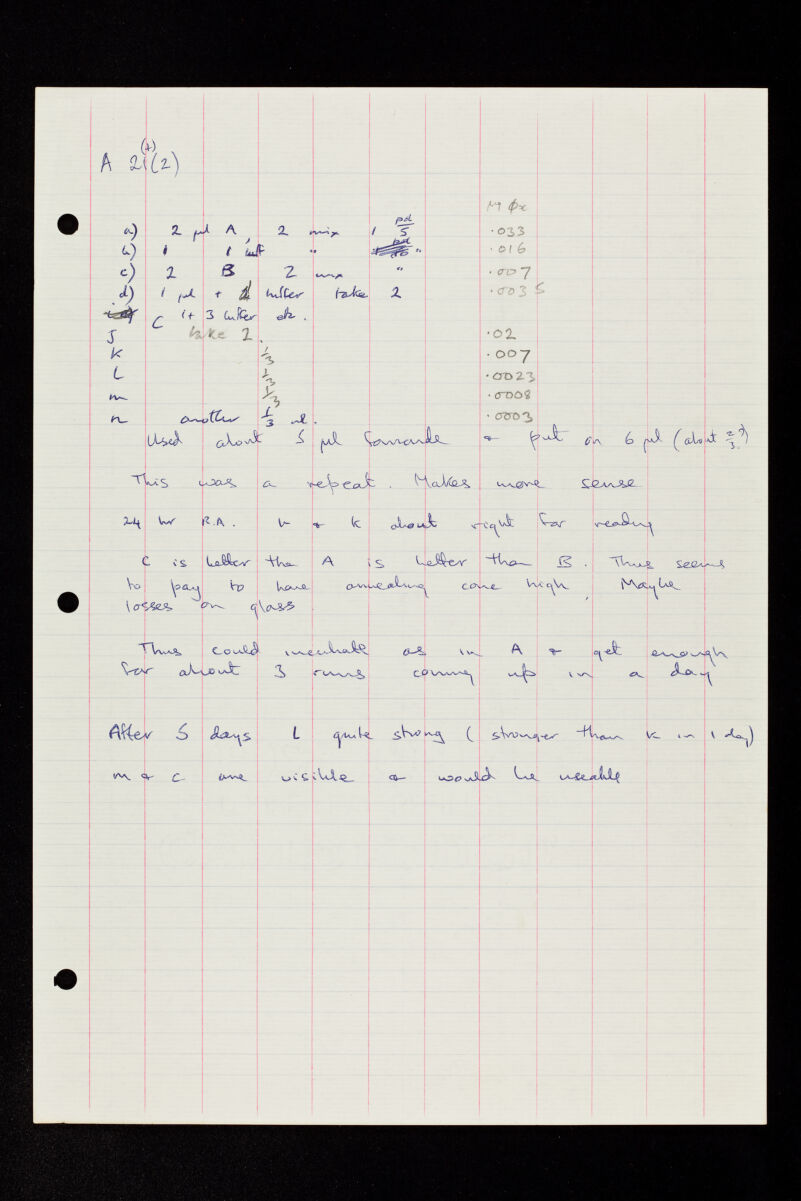 (+)
A 21(2)
μg φx
a) 2 μl A, 2 mix 1 pol/5 ·033
b) 1 1 buff " " ·016
c) 2 B 2 mix " ·007
d) 1 μl + buffer take 2 ·0035
C 1+3 buffer etc.
J take 2. ·02
K 1/3 ·007
L 1/3 ·0023
m 1/3 ·0008
n another 1/3 ·0003
Used about 5 μl formamide & put on 6 μl (about 2/3?)
This was a repeat. Makes more sense
24 hr R.A. & K about right for reading
C is better than A is better than B. Thus seems
to pay to have annealing conc high. Maybe
losses on glass.
Thus could incubate as in A & get enough
for about 3 runs coming up in a day
After 5 days L quite strong (stronger than K in 1 day)
m & c are visible & would be useable